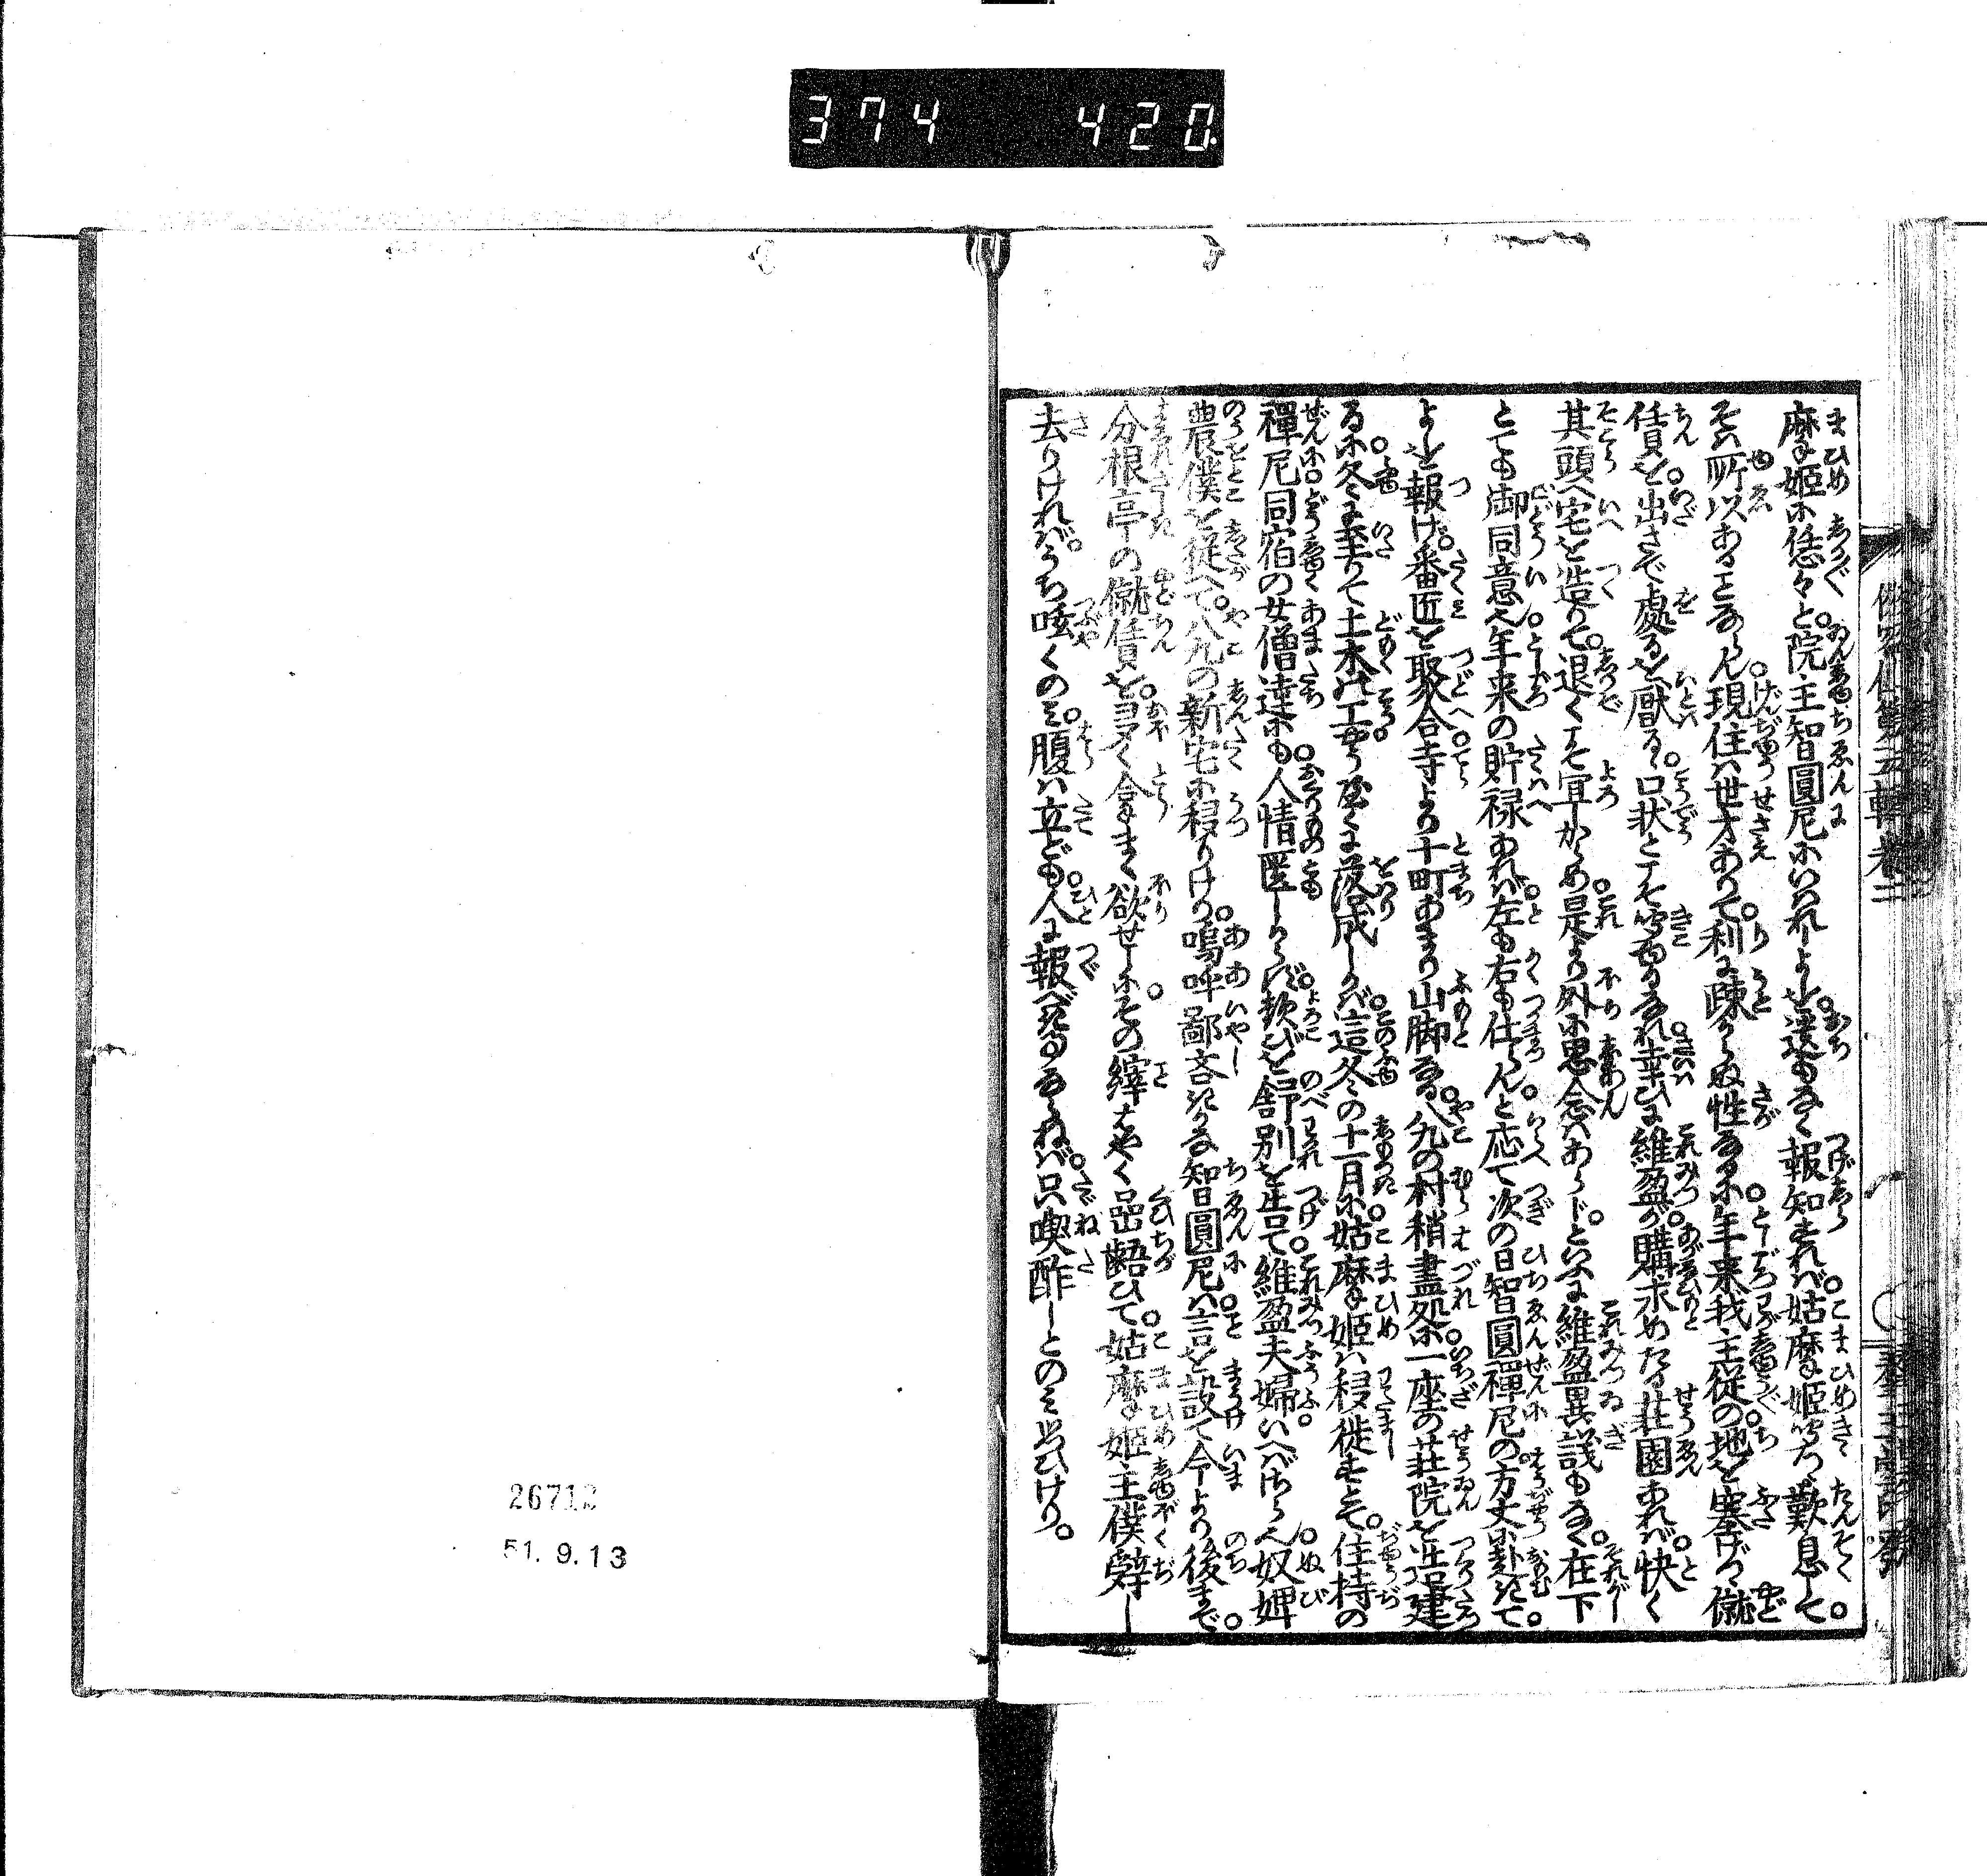 374 420
麻姫に恁々と院主智圓尼にいはれしよしを遺もなく報知すれば姑麻姫聞つゝ歎息して
そは所以ある事ならん現住は世才ありて利に疎からぬ性なるに年来我主従の地を塞げて僦
賃を出さで處るを厭る口状とこそ聞ゆるなれ幸ひに維盈が購求めたる荘園あれば快く
其頭へ宅を造りて退くこそ宜からめ是より外に思念はあらじといふに維盈異議もなく在下
とても御同意也年来の貯禄あれば左も右も仕らんと応て次の日智圓禅尼の方丈に赴きて
よしを報げ番匠を聚合寺より十町あまり山脚なる八九の村稍盡処に一座の荘院を造建
るに冬に至りて土木の工やうやくに落成しかば這冬の十一月に姑麻姫は移徙すとて住持の
禪尼同宿の女僧達にも人情匮しからず歓びを舒別を告て維盈夫婦いへばさら也奴婢
農僕を従へて八九の新宅に移りけり嗚呼鄙吝きかな知圓尼は言を設て今より後まで
分根亭の僦賃をヨク多く拿まく欲せしにその縡はやく齟齬ひて姑麻姫主僕辞し
去りければうち呟くのみ腹は立ども人に報べきるならねば只喫醋しとのみ思ひけり。
26712
51.9.13